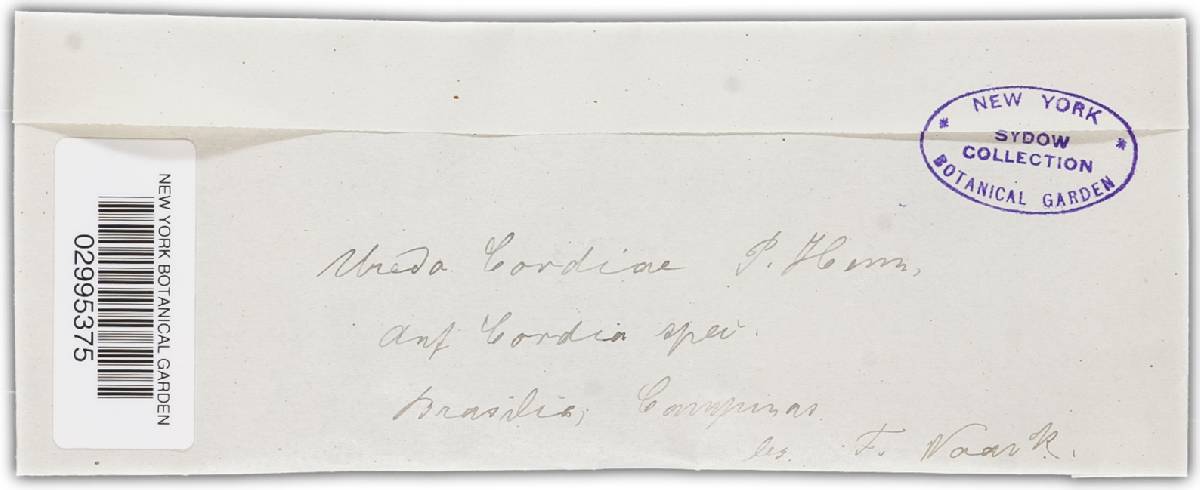 NEW YORK
SYDOW
COLLECTION
BOTANICAL GARDEN
NEW YORK BOTANICAL GARDEN
02995375
Uredo Cordiae P. Henn.
Auf Cordia spec.
Brasilia, Campinas
leg. F. Noack.